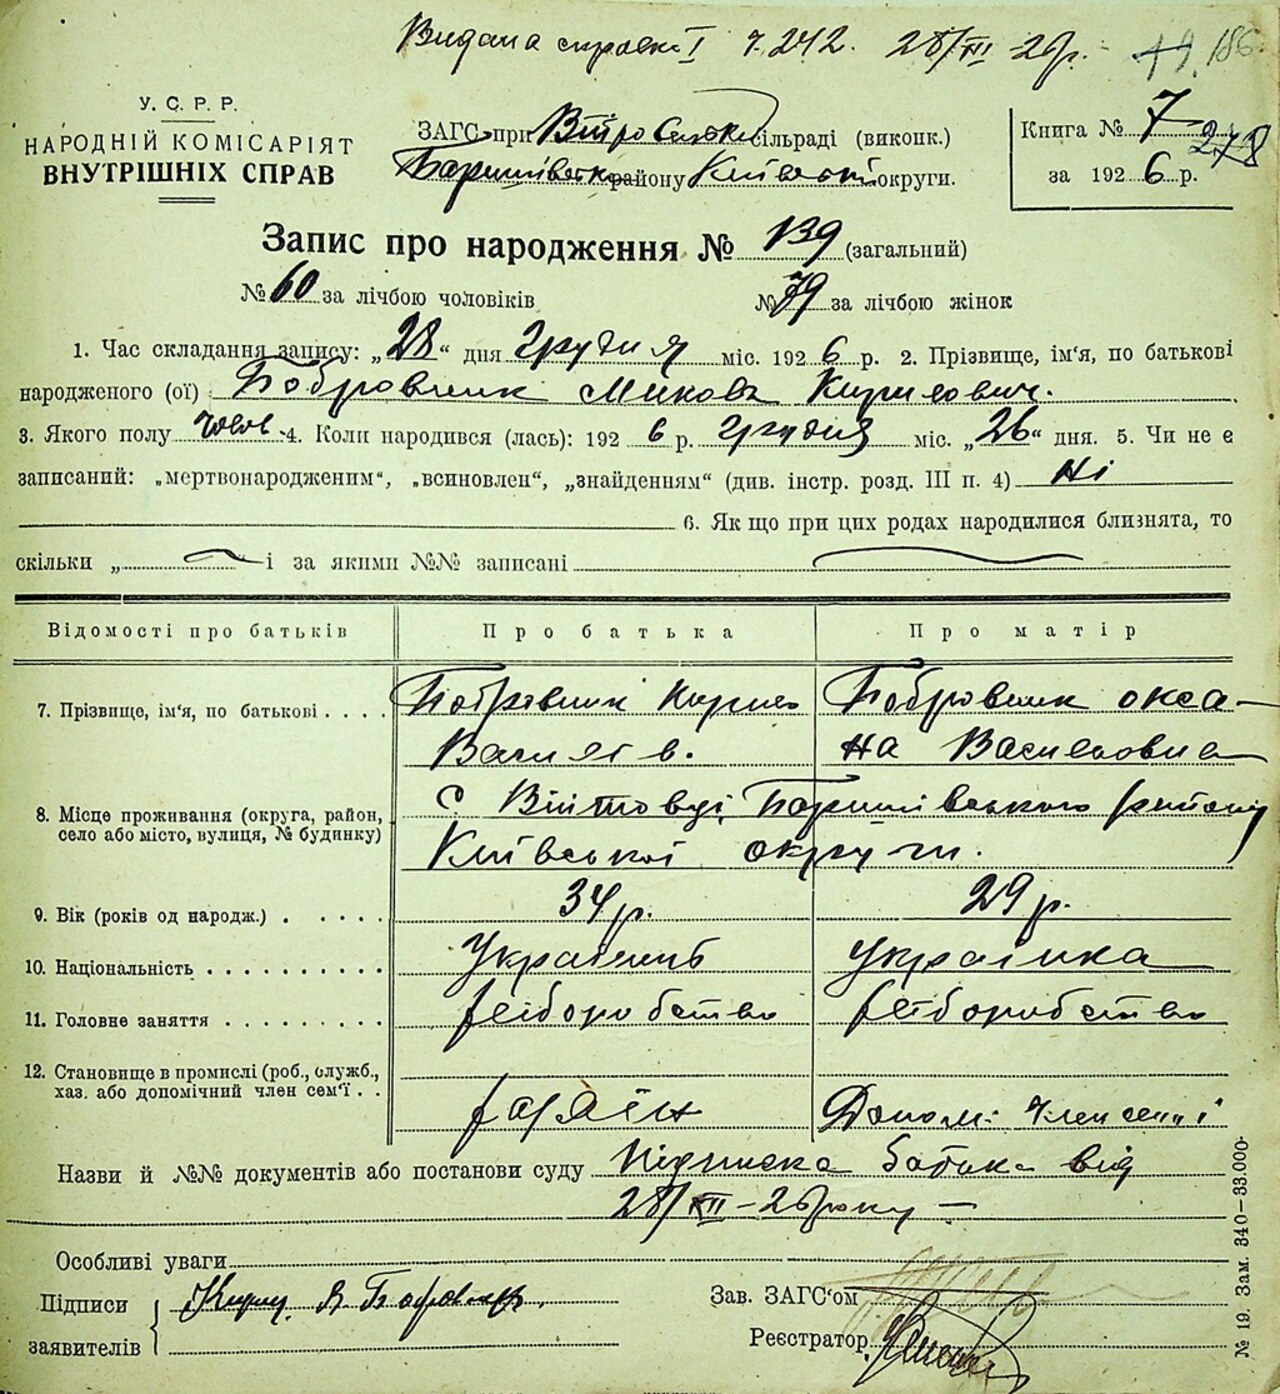 Видана справка ч. 242. 28/XII 26р. 19. 186.
У. С. Р. Р.
НАРОДНІЙ КОМІСАРІЯТ
ВНУТРІШНІХ СПРАВ
ЗАГС при сільраді (виконк.)
Баришівськ району Київськ округи.
Книга № 7 278
за 192 6 р.
Запис про народження № 139 (загальний)
№ 60 за лічбою чоловіків № 79 за лічбою жінок
1. Час складання запису: „28“ дня Грудня міс. 192 6 р. 2. Прізвище, ім'я, по батькові
народженого (ої) Бобровник Микола Кирилович.
3. Якого полу чолов 4. Коли народився (лась): 192 6 р. Грудня міс. „26“ дня. 5. Чи не є
записаний: „мертвонародженим“, „всиновлен“, „знайденням“ (див. інстр. розд. III п. 4) Ні
6. Як що при цих родах народилися близнята, то
скільки „ “ і за якими №№ записані
Відомості про батьків Про батька Про матір
7. Прізвище, ім'я, по батькові . . . . Бобровник Кирило Бобровник Окса-
Василів. на Васильовна
8. Місце проживання (округа, район, с Війтовці, Баришівського району
село або місто, вулиця, № будинку) Київської округи.
9. Вік (років од народж.) . . . . . 34 р. 29 р.
10. Національність . . . . . . . . . . Українець Українка
11. Головне заняття . . . . . . . . . хліборобство хліборобство
12. Становище в промислі (роб., служб.,
хаз. або допомічний член сем'ї . . хазяїн Допом: член семи'ї
Назви й №№ документів або постанови суду Підписка батька від
28/XII - 26 року —
Особливі уваги
Підписи Бобровник
заявителів
Зав. ЗАГС'ом
Реєстратор
№ 19. Зам. 340—33.000·